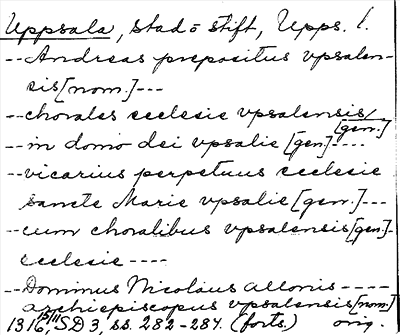 Uppsala, stad o stift, Upps. l.
--Andreas prepositus vpsalen-
sis [nom.]---
--chorales ecclesie vpsalensis/
[gen.]
--in domo dei vpsalie [gen]----
--vicarius perpetuus ecclesie
sancte Marie vpsalie [gen.]---
--cum choralibus vpsalensis [gen]-
ecclesie ----
--Dominus Nicolaus allonis----
archiepiscopus vpsalensis [nom]
SD 3, ss. 282-284. (forts.) orig.